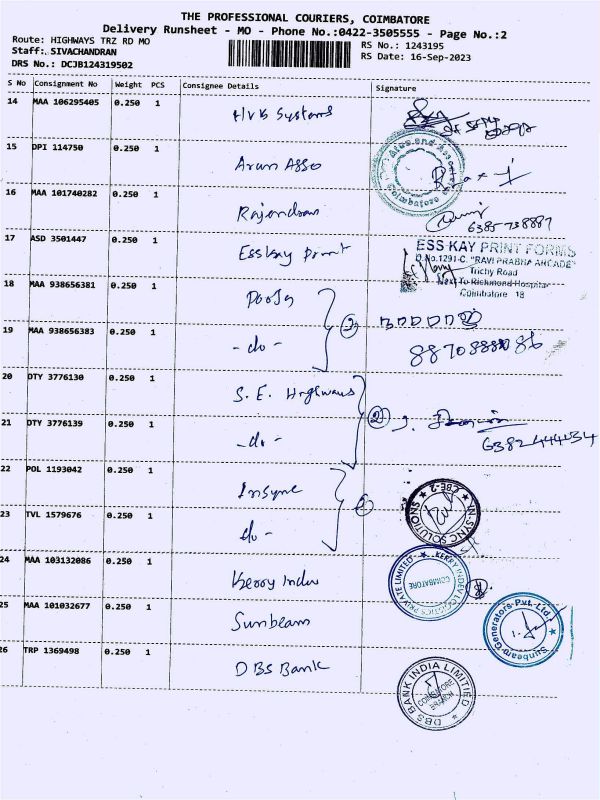 THE PROFESSIONAL COURIERS, COIMBATORE
Delivery Runsheet - MO - Phone No.:0422-3505555 - Page No.:2
Route: HIGHWAYS TRZ RD MO
RS No.: 1243195
Staff: SIVACHANDRAN
RS Date: 16-Sep-2023
DRS No.: DCJB124319502
S No Consignment No Weight PCS Consignee Details Signature
14 MAA 106295405 0.250 1 HVB Systems
15 DPI 114750 0.250 1 Arun Asso
Coimbatore
16 MAA 101740282 0.250 1 Rajendran
6385738887
17 ASD 3501447 0.250 1 Esskay print
ESS KAY PRINT FORMS
D.No.1291-C, "RAVI PRABHA ARCADE"
Trichy Road
Next To Richmond Hospital
Coimbatore 18
18 MAA 938656381 0.250 1 Pooja
2
19 MAA 938656383 0.250 1 -do-
20 DTY 3776130 0.250 1 S. E. Highways
2
21 DTY 3776139 0.250 1 -do-
6382444434
22 POL 1193042 0.250 1 Insync
IN-SYNC SOLUTIONS ★ CBE-2 ★
23 TVL 1579676 0.250 1 do -
24 MAA 103132086 0.250 1 Kerry Indev
★ KERRY INDEV LOGISTICS PRIVATE LIMITED
COIMBATORE
25 MAA 101032677 0.250 1 Sunbeam
Sunbeam Generators Pvt. Ltd.
26 TRP 1369498 0.250 1 DBS Bank
DBS BANK INDIA LIMITED ★
COIMBATORE
BRANCH